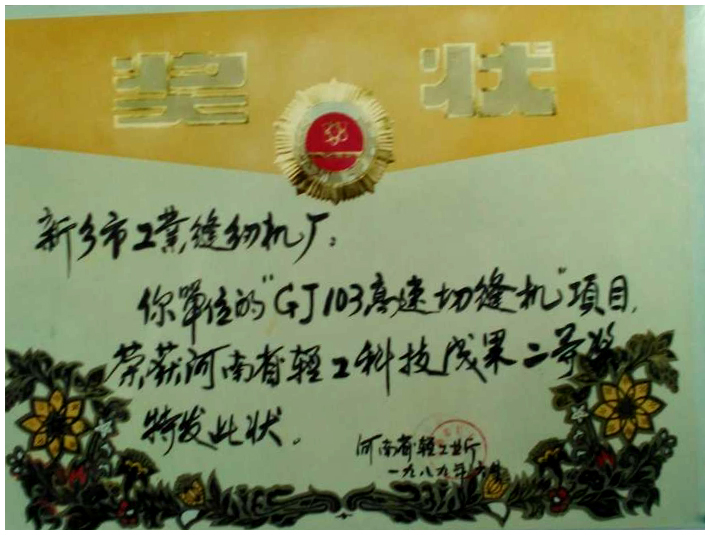 奖状
新乡市工業缝纫机厂：
你單位的"GJ103高速切缝机"項目，
荣获河南省輕工科技成果二等奖
特发此状。
河南省輕工业厅
一九八九年六月